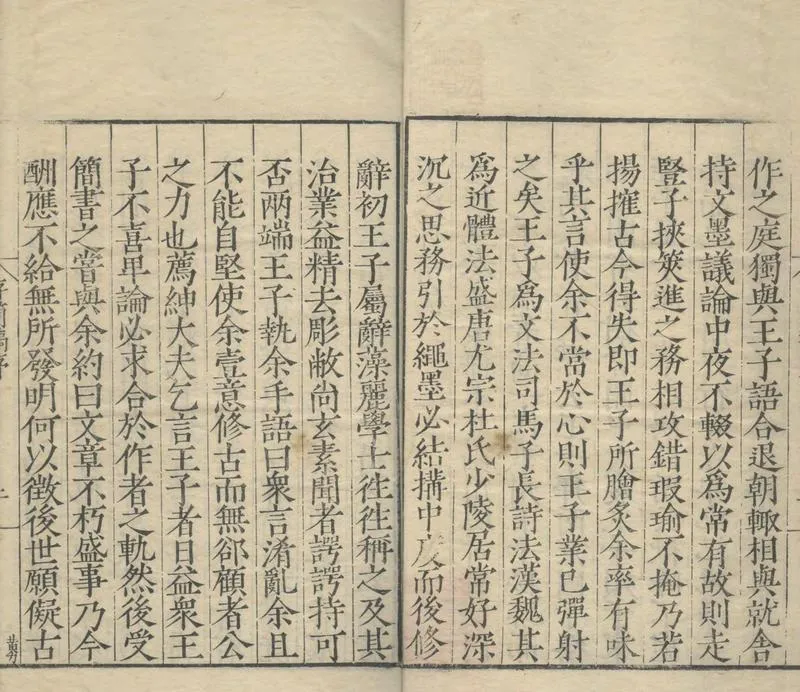 作之庭獨與王子語合退朝輙相與就舍
持文墨議論中夜不輟以爲常有故則走
豎子挾筴進之務相攻錯瑕瑜不掩乃若
揚搉古今得失即王子所膾炙余率有味
乎其言使余不當於心則王子業已彈射
之矣王子爲文法司馬子長詩法漢魏其
爲近體法盛唐尤宗杜氏少陵居常好深
沉之思務引於繩墨必結搆中度而後修
辭初王子屬辭藻麗學士徃徃稱之及其
治業益精去彫敝尙玄素聞者諤諤持可
否兩端王子執余手語曰衆言淆亂余且
不能自堅使余壹意修古而無郤顧者公
之力也薦紳大夫乞言王子者日益衆王
子不喜卑論必求合於作者之軌然後受
簡書之嘗與余約曰文章不朽盛事乃今
酬應不給無所發明何以徵後世願儗古